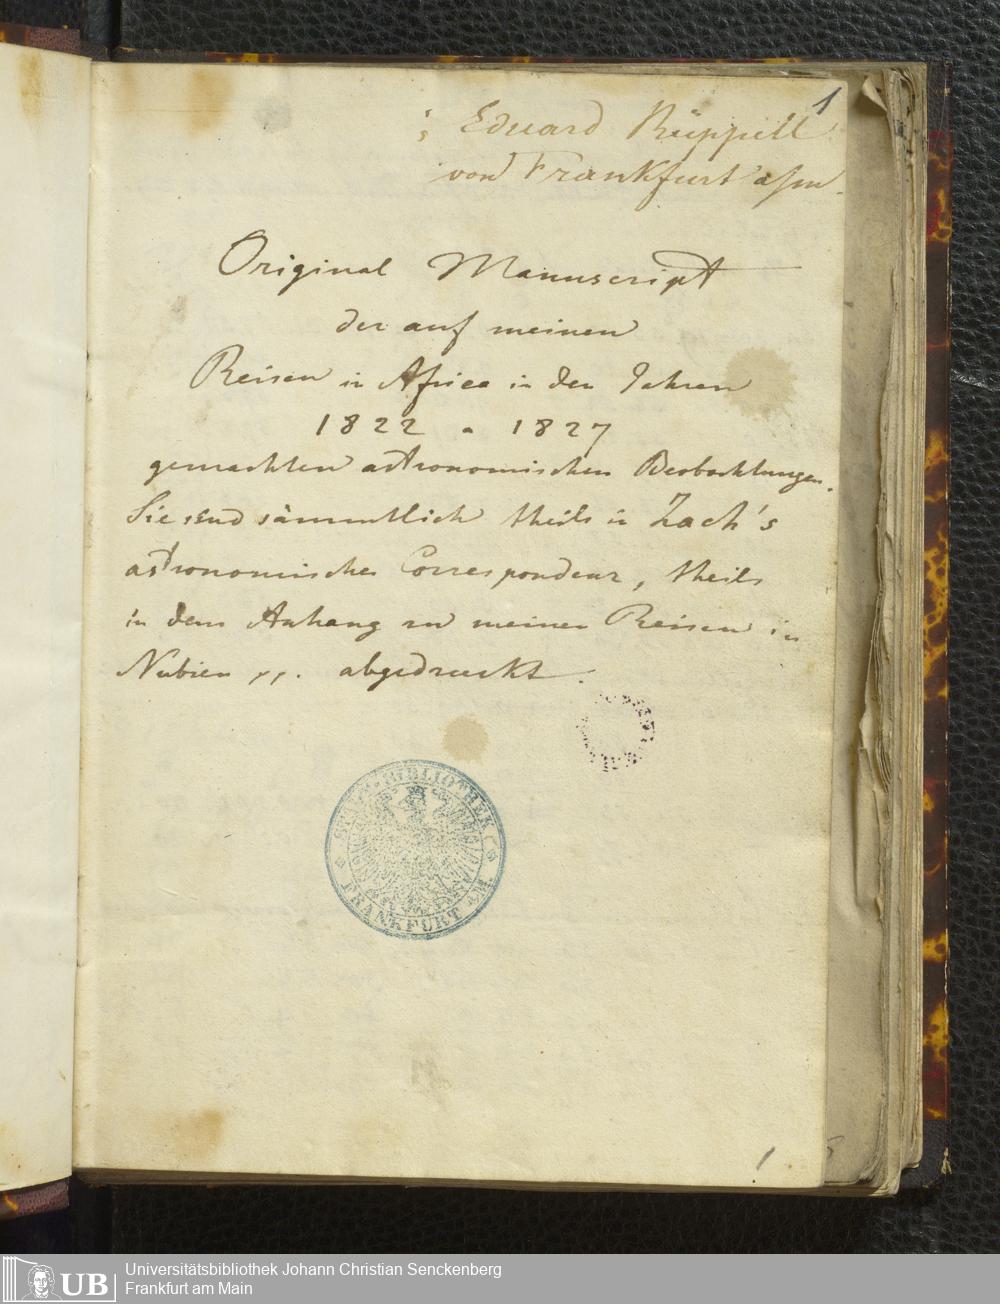 1
Eduard Rüppell
von Frankfurt a/m.
Original Manuscript
der auf meinen
Reisen in Africa in den Jahren
1822 - 1827
gemachten astronomischen Beobachtungen.
Sie sind sämmtlich theils in Zach's
astronomischer Correspondenz, theils
in dem Anhang zu meinen Reisen in
Nubien pp. abgedruckt.
STADT-BIBLIOTHEK
FRANKFURT A/M.
1
UB
Universitätsbibliothek Johann Christian Senckenberg
Frankfurt am Main